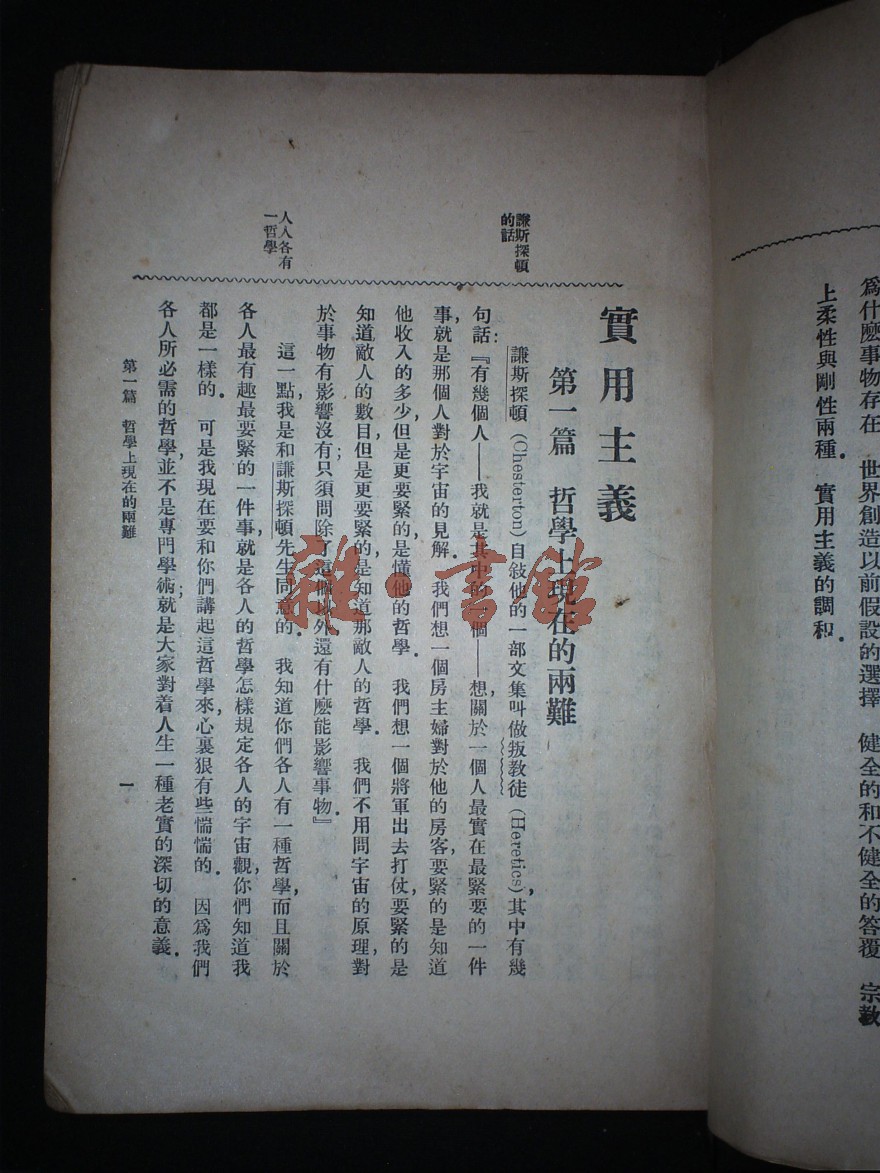 爲什麽事物存在　世界創造以前假設的選擇　健全的和不健全的答覆　宗教
上柔性與剛性兩種．　實用主義的調和．
實用主義
第一篇　哲學上現在的兩難
謙斯探頓
的話
謙斯探頓 (Chesterton) 自敍他的一部文集叫做叛教徒 (Heretics)，其中有幾
句話：『有幾個人——我就是其中的一個——想，關於一個人最實在最緊要的一件
事，就是那個人對於宇宙的見解．　我們想一個房主婦對於他的房客，要緊的是知道
他收入的多少，但是更要緊的，是懂他的哲學．　我們想一個將軍出去打仗，要緊的是
知道敵人的數目，但是更要緊的，是知道那敵人的哲學．　我們不用問宇宙的原理，對
於事物有影響沒有；只須問除了這個以外還有什麽能影響事物．』
人人各有
一哲學
這一點，我是和謙斯探頓先生同意的．　我知道你們各人有一種哲學，而且關於
各人最有趣最要緊的一件事，就是各人的哲學怎樣規定各人的宇宙觀，你們知道我
都是一樣的．　可是我現在要和你們講起這哲學來，心裏狠有些惴惴的．　因爲我們
各人所必需的哲學，並不是專門學術；就是大家對着人生一種老實的深切的意義．
第一篇　哲學上現在的兩難
一
雜·書館